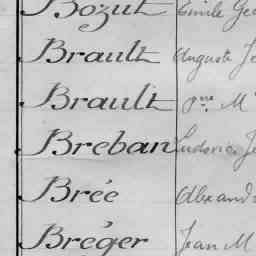 Bozut Emile Geo
Brault Auguste Je
Brault Jne. M
Breban Ludovic Je
Brée Alexand
Bréger Jean M